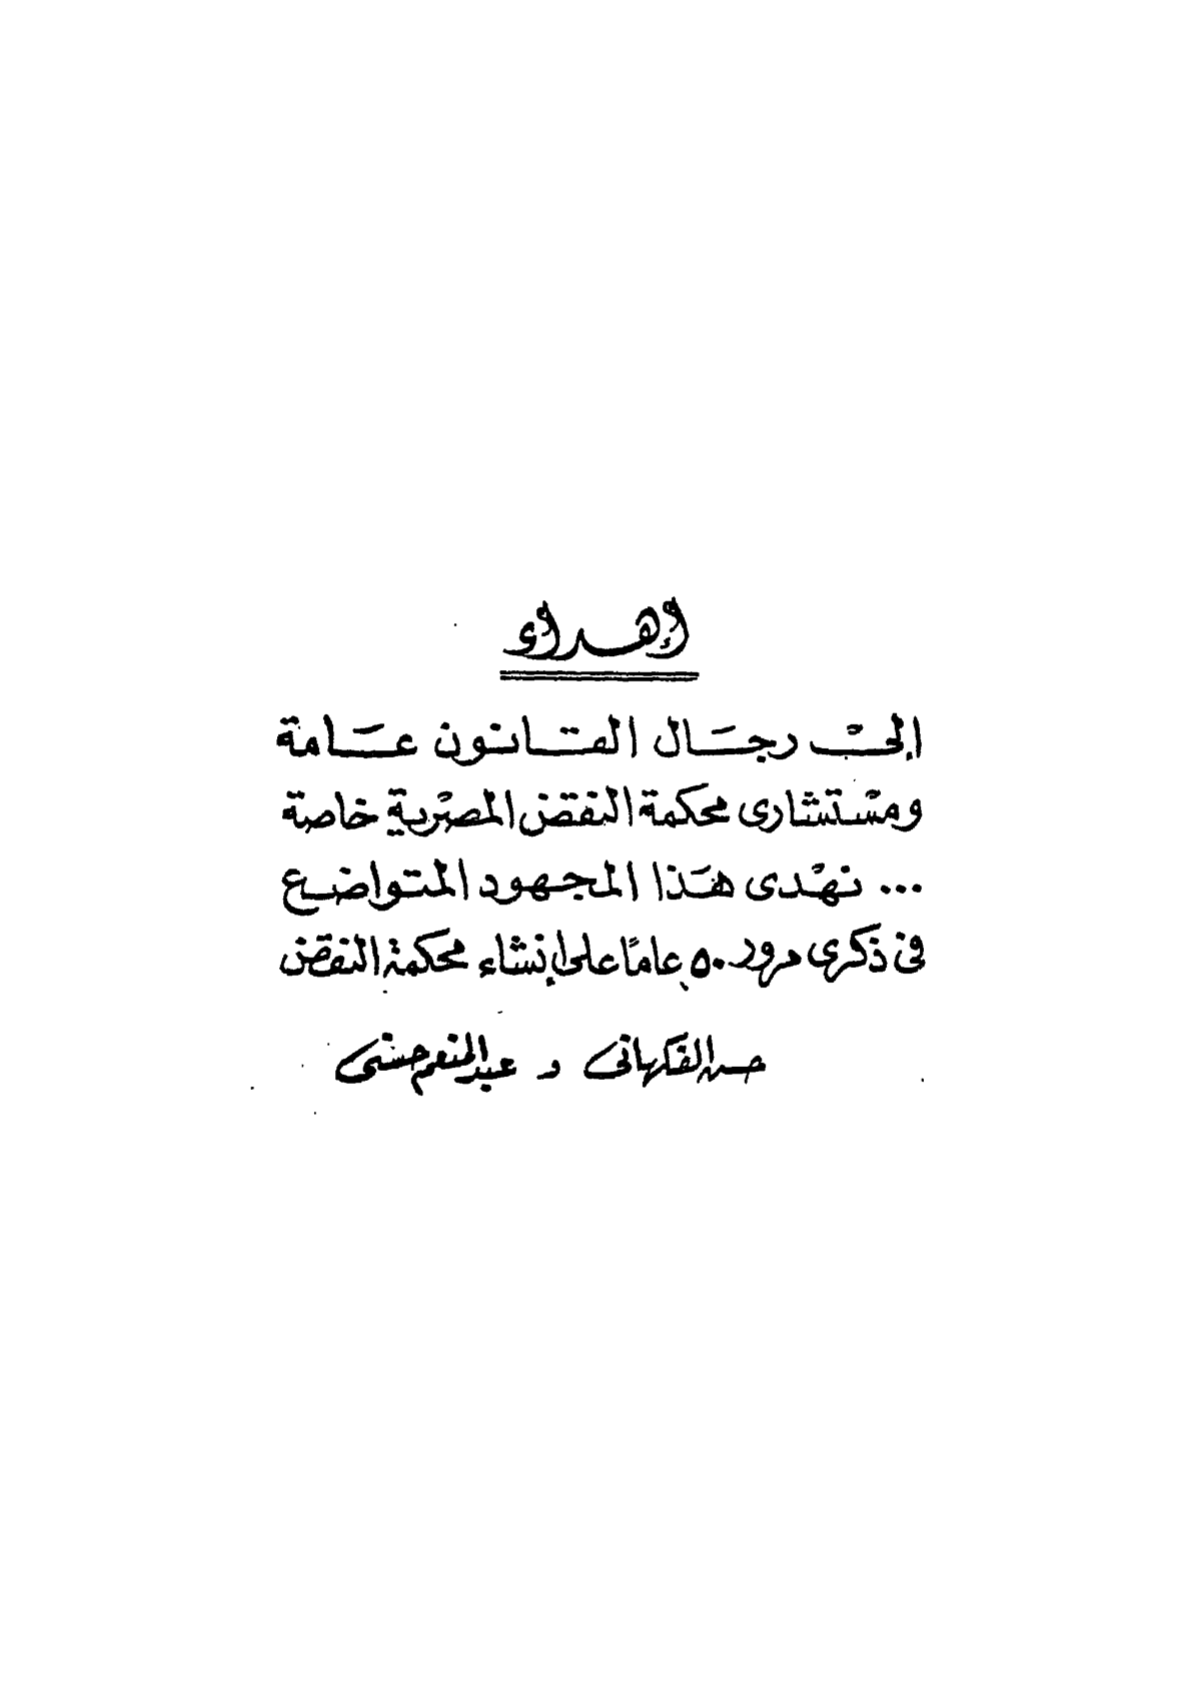 إهداء
إلى رجال القانون عامة
ومستشارى محكمة النقض المصرية خاصة
... نهدى هذا المجهود المتواضع
فى ذكرى مرور ٥٠ عامًا على إنشاء محكمة النقض
حسن الفكهانى و عبد المنعم حسنى